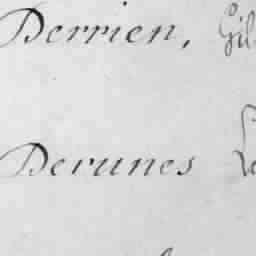 Derrien, Gil
Derunes